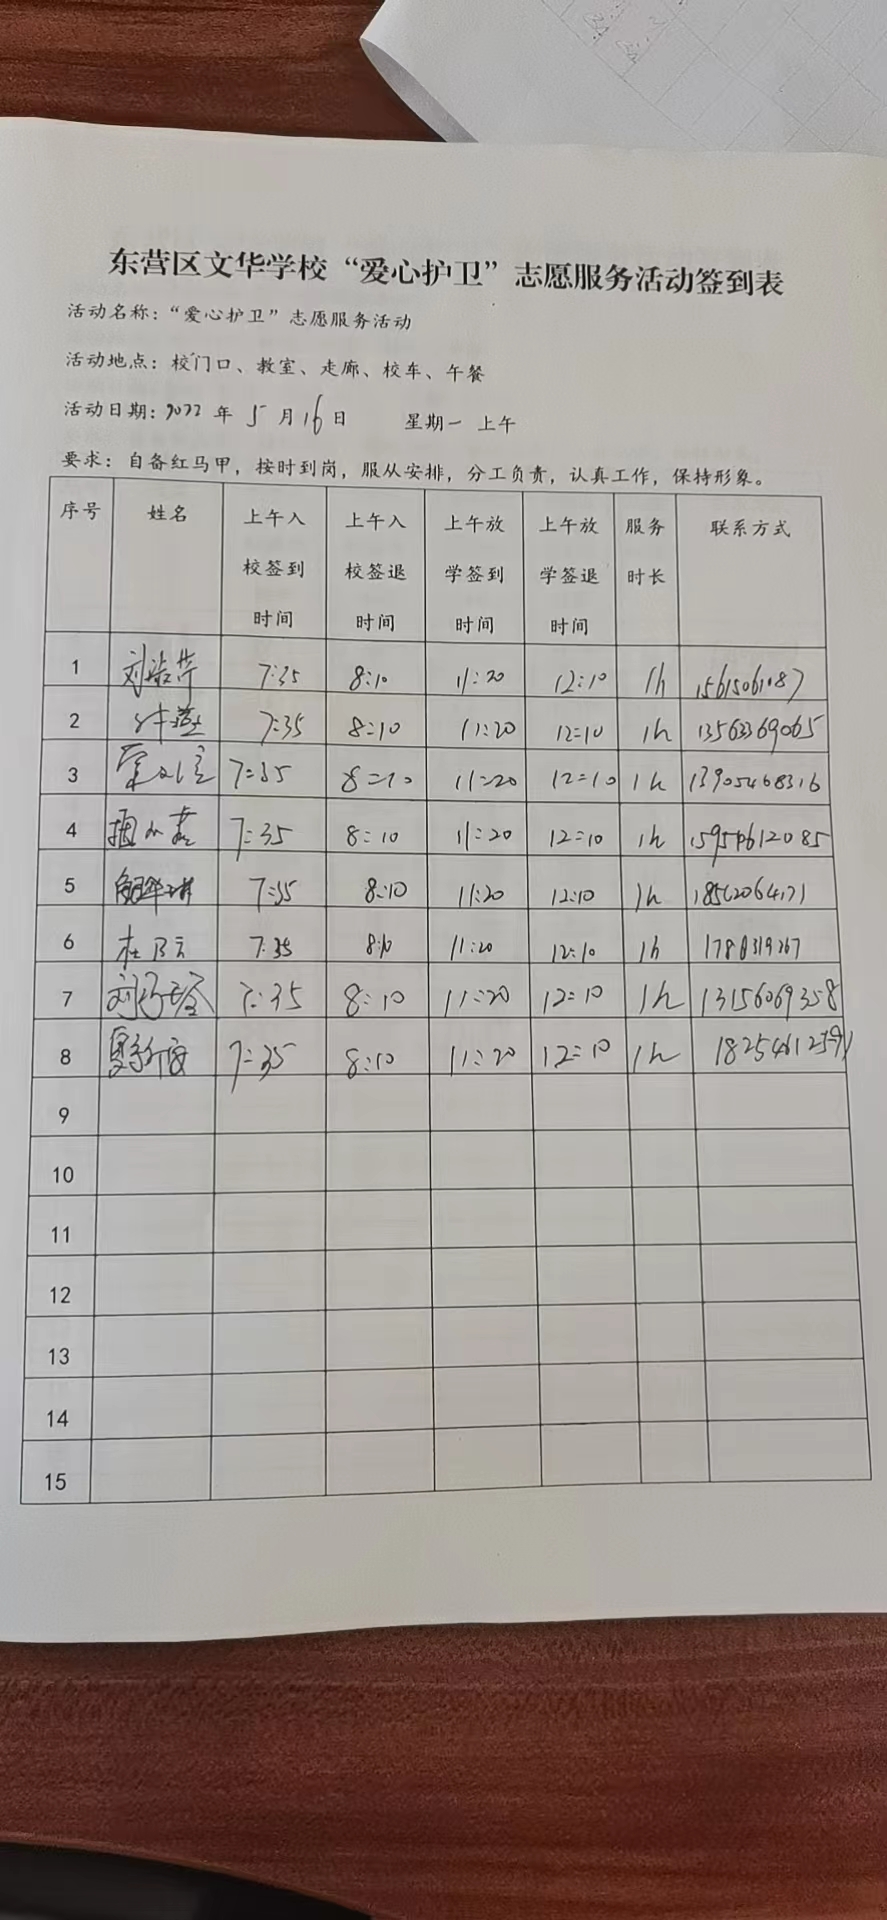 东营区文华学校“爱心护卫”志愿服务活动签到表
活动名称：“爱心护卫”志愿服务活动
活动地点：校门口、教室、走廊、校车、午餐
活动日期：2022年5月16日 星期一 上午
要求：自备红马甲，按时到岗，服从安排，分工负责，认真工作，保持形象。
序号 姓名 上午入校签到时间 上午入校签退时间 上午放学签到时间 上午放学签退时间 服务时长 联系方式
1 7:35 8:10 11:20 12:10 1h 15615061087
2 7:35 8:10 11:20 12:10 1h 13563369065
3 7:35 8:10 11:20 12:10 1h 13905468316
4 7:35 8:10 11:20 12:10 1h
5 7:35 8:10 11:20 12:10 1h
6 7:35 8:10 11:20 12:10 1h
7 7:35 8:10 11:20 12:10 1h 13156069358
8 7:35 8:10 11:20 12:10 1h
9
10
11
12
13
14
15